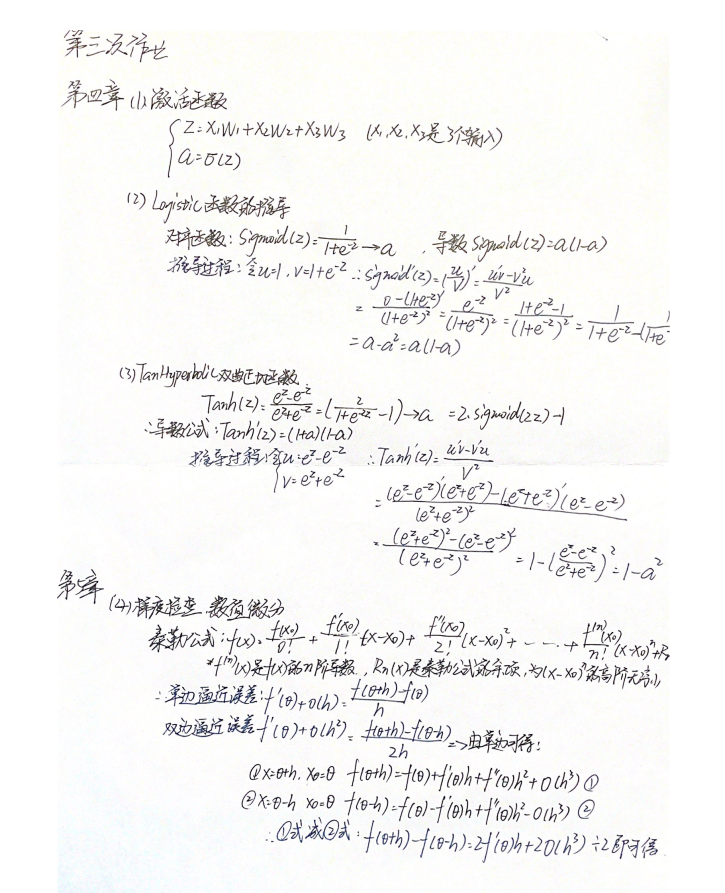 第三次作业
第四章 (1)激活函数
{ Z=X₁W₁+X₂W₂+X₃W₃ (X₁,X₂,X₃是3个输入)
a=σ(Z)
(2) Logistic函数的推导
对率函数: Sigmoid(z)=1/(1+e^-z)→a , 导数Sigmoid'(z)=a(1-a)
推导过程:令u=1,v=1+e^-z ∴sigmoid'(z)=(u/v)'=(u'v-v'u)/v²
=(0-(1+e^-z)')/(1+e^-z)²=e^-z/(1+e^-z)²=(1+e^-z-1)/(1+e^-z)²=1/(1+e^-z)-(1/(1+e
=a-a²=a(1-a)
(3)TanHyperbolic双曲正切函数
Tanh(z)=(e^z-e^-z)/(e^z+e^-z)=(2/(1+e^-2z)-1)→a =2.sigmoid(2z)-1
∴导数公式:Tanh'(z)=(1+a)(1-a)
推导过程:令{u=e^z-e^-z ∴Tanh'(z)=(u'v-v'u)/v²
v=e^z+e^-z
=((e^z-e^-z)'(e^z+e^-z)-(e^z+e^-z)'(e^z-e^-z))/(e^z+e^-z)²
=((e^z+e^-z)²-(e^z-e^-z)²)/(e^z+e^-z)²=1-((e^z-e^-z)/(e^z+e^-z))²=1-a²
章
(4)梯度检查 数值微分
泰勒公式:f(x)=f(x₀)/0!+f'(x₀)/1!(x-x₀)+f''(x₀)/2!(x-x₀)²+……+f⁽ⁿ⁾(x₀)/n!(x-x₀)ⁿ+R
*f⁽ⁿ⁾(x)是f(x)的n阶导数,Rn(x)是泰勒公式的余项,为(x-x₀)ⁿ的高阶无穷小
∴单边逼近误差:f'(θ)+O(h)=(f(θ+h)-f(θ))/h
双边逼近误差f'(θ)+O(h²)=(f(θ+h)-f(θ-h))/2h=>由单边可得:
①x=θ+h, x₀=θ f(θ+h)=f(θ)+f'(θ)h+f''(θ)h²+O(h³) ①
②x=θ-h x₀=θ f(θ-h)=f(θ)-f'(θ)h+f''(θ)h²-O(h³) ②
∴①式减②式:f(θ+h)-f(θ-h)=2f'(θ)h+2O(h³) ÷2即可得